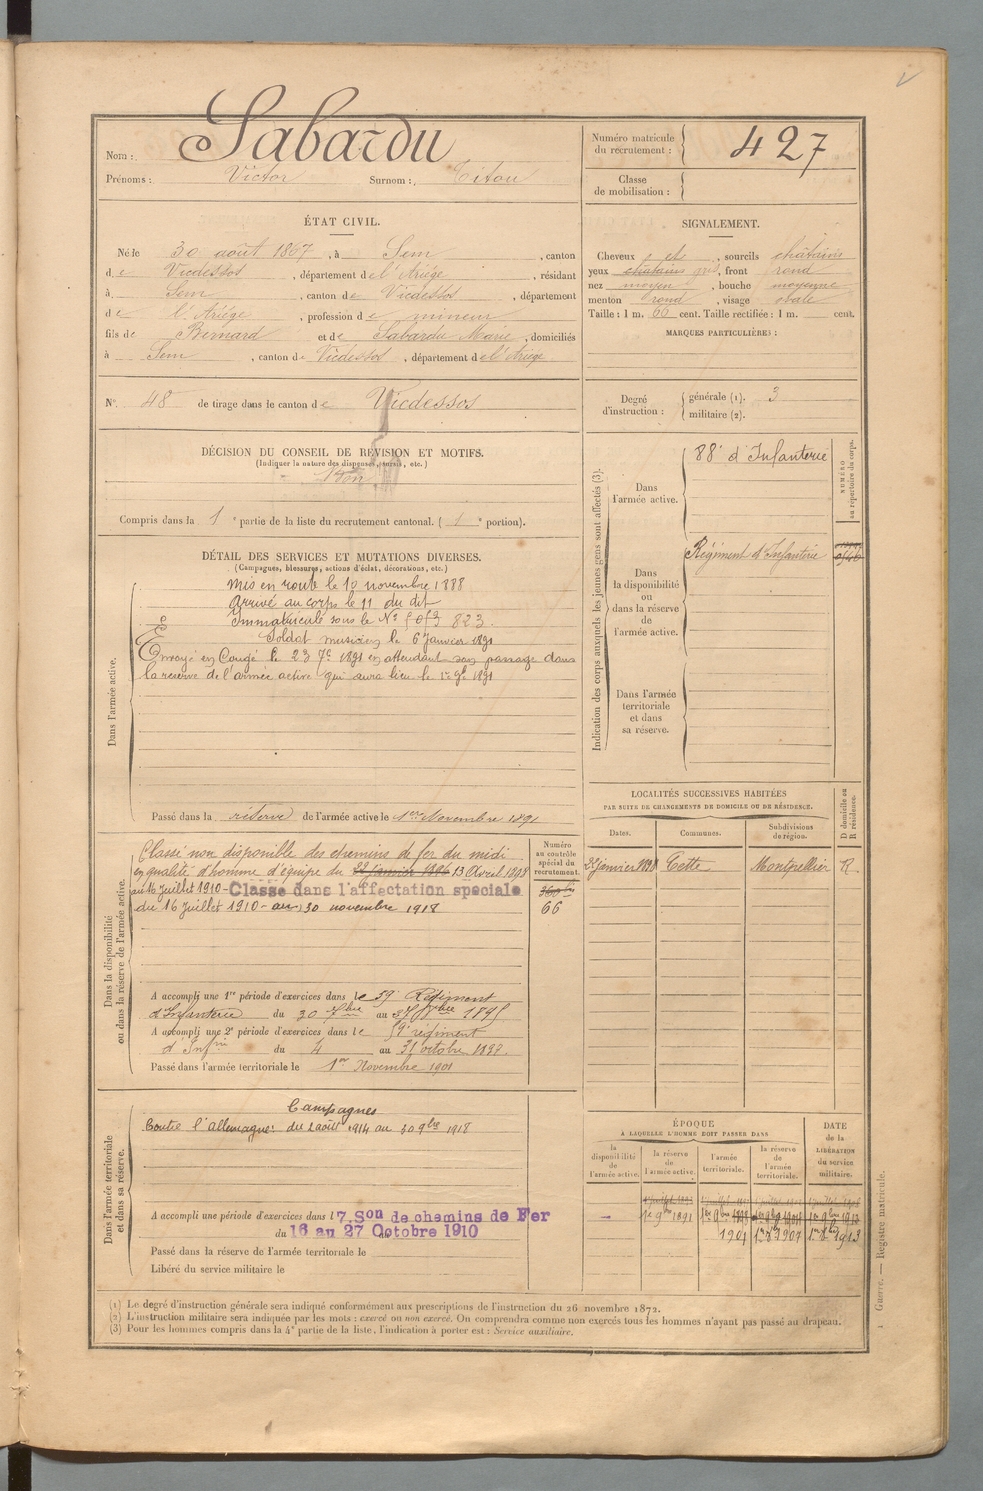 Nom : Sabardu
Prénoms : Victor Surnom : Titou
Numéro matricule du recrutement : 427
Classe de mobilisation :
ÉTAT CIVIL.
Né le 30 août 1867, à Sem, canton
de Vicdessos, département de l'Ariége, résidant
à Sem, canton de Vicdessos, département
de l'Ariége, profession de mineur
fils de Bernard et de Sabardu Marie, domiciliés
à Sem, canton de Vicdessos, département de l'Ariége
SIGNALEMENT.
Cheveux et, sourcils châtains
yeux châtains gris, front rond
nez moyen, bouche moyenne
menton rond, visage ovale
Taille : 1 m. 66 cent. Taille rectifiée : 1 m. cent.
MARQUES PARTICULIÈRES :
N° 48 de tirage dans le canton de Vicdessos
Degré d'instruction : générale (1). 3
militaire (2).
DÉCISION DU CONSEIL DE RÉVISION ET MOTIFS.
(Indiquer la nature des dispenses, sursis, etc.)
Bon
Compris dans la 1e partie de la liste du recrutement cantonal. (1e portion).
DÉTAIL DES SERVICES ET MUTATIONS DIVERSES.
(Campagnes, blessures, actions d'éclat, décorations, etc.)
Dans l'armée active.
Mis en route le 10 novembre 1888
Arrivé au corps le 11 du dit
Immatriculé sous le N° 823.
Soldat musicien le 6 janvier 1891
Envoyé en Congé le 23 7e 1891 en attendant son passage dans
la réserve de l'armée active qui aura lieu le 1er 9e 1891
Passé dans la réserve de l'armée active le 1er Novembre 1891
Indication des corps auxquels les jeunes gens sont affectés (3).
NUMÉRO au répertoire du corps.
Dans l'armée active.
88e d'Infanterie
Dans la disponibilité ou dans la réserve de l'armée active.
Régiment d'Infanterie
Dans l'armée territoriale et dans sa réserve.
Dans la disponibilité ou dans la réserve de l'armée active.
Numéro au contrôle spécial du recrutement.
66
Classé non disponible des chemins de fer du midi
en qualité d'homme d'équipe du 22 janvier 1896 13 Avril 1898
au 16 Juillet 1910 - Classé dans l'affectation spéciale
du 16 Juillet 1910 - au 30 novembre 1918
A accompli une 1re période d'exercices dans le 59e Régiment
d'Infanterie du 30 7bre au 27 8bre 1895
A accompli une 2e période d'exercices dans le 59e régiment
d'Infie du 4 au 31 octobre 1897.
Passé dans l'armée territoriale le 1er Novembre 1901
LOCALITÉS SUCCESSIVES HABITÉES
PAR SUITE DE CHANGEMENTS DE DOMICILE OU DE RÉSIDENCE.
Dates. Communes. Subdivisions de région. D domicile ou R résidence.
22 janvier 1898 Cette Montpellier R
Dans l'armée territoriale et dans sa réserve.
Campagnes
Contre l'allemagne : du 2 août 1914 au 30 9bre 1918
A accompli une période d'exercices dans l 7. Son de chemins de Fer
du 16 au 27 Octobre 1910
Passé dans la réserve de l'armée territoriale le
Libéré du service militaire le
ÉPOQUE
À LAQUELLE L'HOMME DOIT PASSER DANS
DATE de la LIBÉRATION du service militaire.
la disponibilité de l'armée active.
la réserve de l'armée active.
l'armée territoriale.
la réserve de l'armée territoriale.
— 1er 9bre 1891
1901
(1) Le degré d'instruction générale sera indiqué conformément aux prescriptions de l'instruction du 26 novembre 1872.
(2) L'instruction militaire sera indiquée par les mots : exercé ou non exercé. On comprendra comme non exercés tous les hommes n'ayant pas passé au drapeau.
(3) Pour les hommes compris dans la 4e partie de la liste, l'indication à porter est : Service auxiliaire.
Guerre. — Registre matricule.